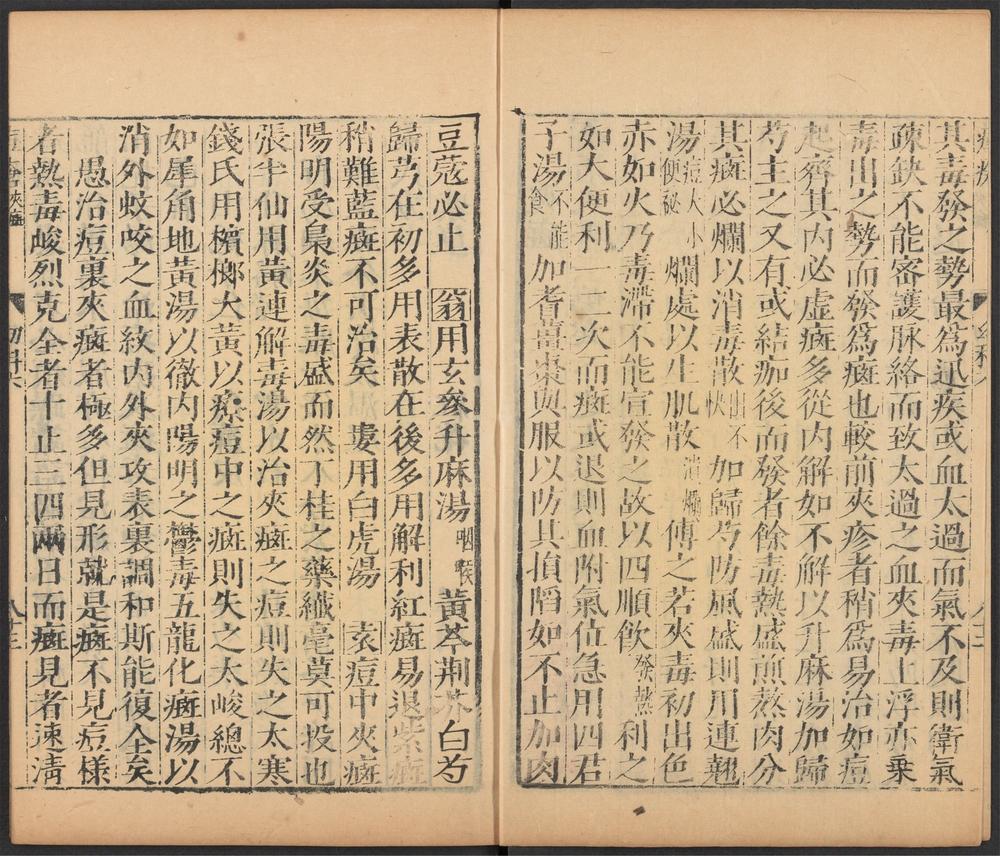 其毒發之勢最爲迅疾或血太過而氣不及則衛氣
疎缺不能密護脉絡而致太過之血夾毒上浮亦乗
毒出之勢而發爲癍也較前夾疹者稍爲易治如痘
起齊其内必虛癍多從内解如不解以升麻湯加歸
芍主之又有或結痂後而發者餘毒熱盛煎熬肉分
其癍必爛以消毒散出不快加歸芍防風盛則用連翹
湯痘大小便秘爛處以生肌散潰爛傅之若夾毒初出色
赤如火乃毒滯不能宣發之故以四順飲發熱利之
如大便利一二次而癍或退則血附氣位急用四君
子湯不能食加耆薑棗與服以防其損陷如不止加肉
豆蔻必止 翁用玄參升麻湯咽喉黃芩荆芥白芍
歸芎在初多用表散在後多用解利紅癍易退紫癍
稍難藍癍不可治矣 婁用白虎湯 袁痘中夾癍
陽明受梟炎之毒盛而然不桂之藥纖毫莫可投也
張半仙用黃連解毒湯以治夾癍之痘則失之太寒
錢氏用檳榔大黃以療痘中之癍則失之太峻總不
如尾角地黃湯以徹内陽明之鬱毒五龍化癍湯以
消外蚊咬之血紋内外夾攻表裏調和斯能復全矣
愚治痘裏夾癍者極多但見形就是癍不見痘様
者熱毒峻烈克全者十止三四兩日而癍見者速清
幼科
八十三